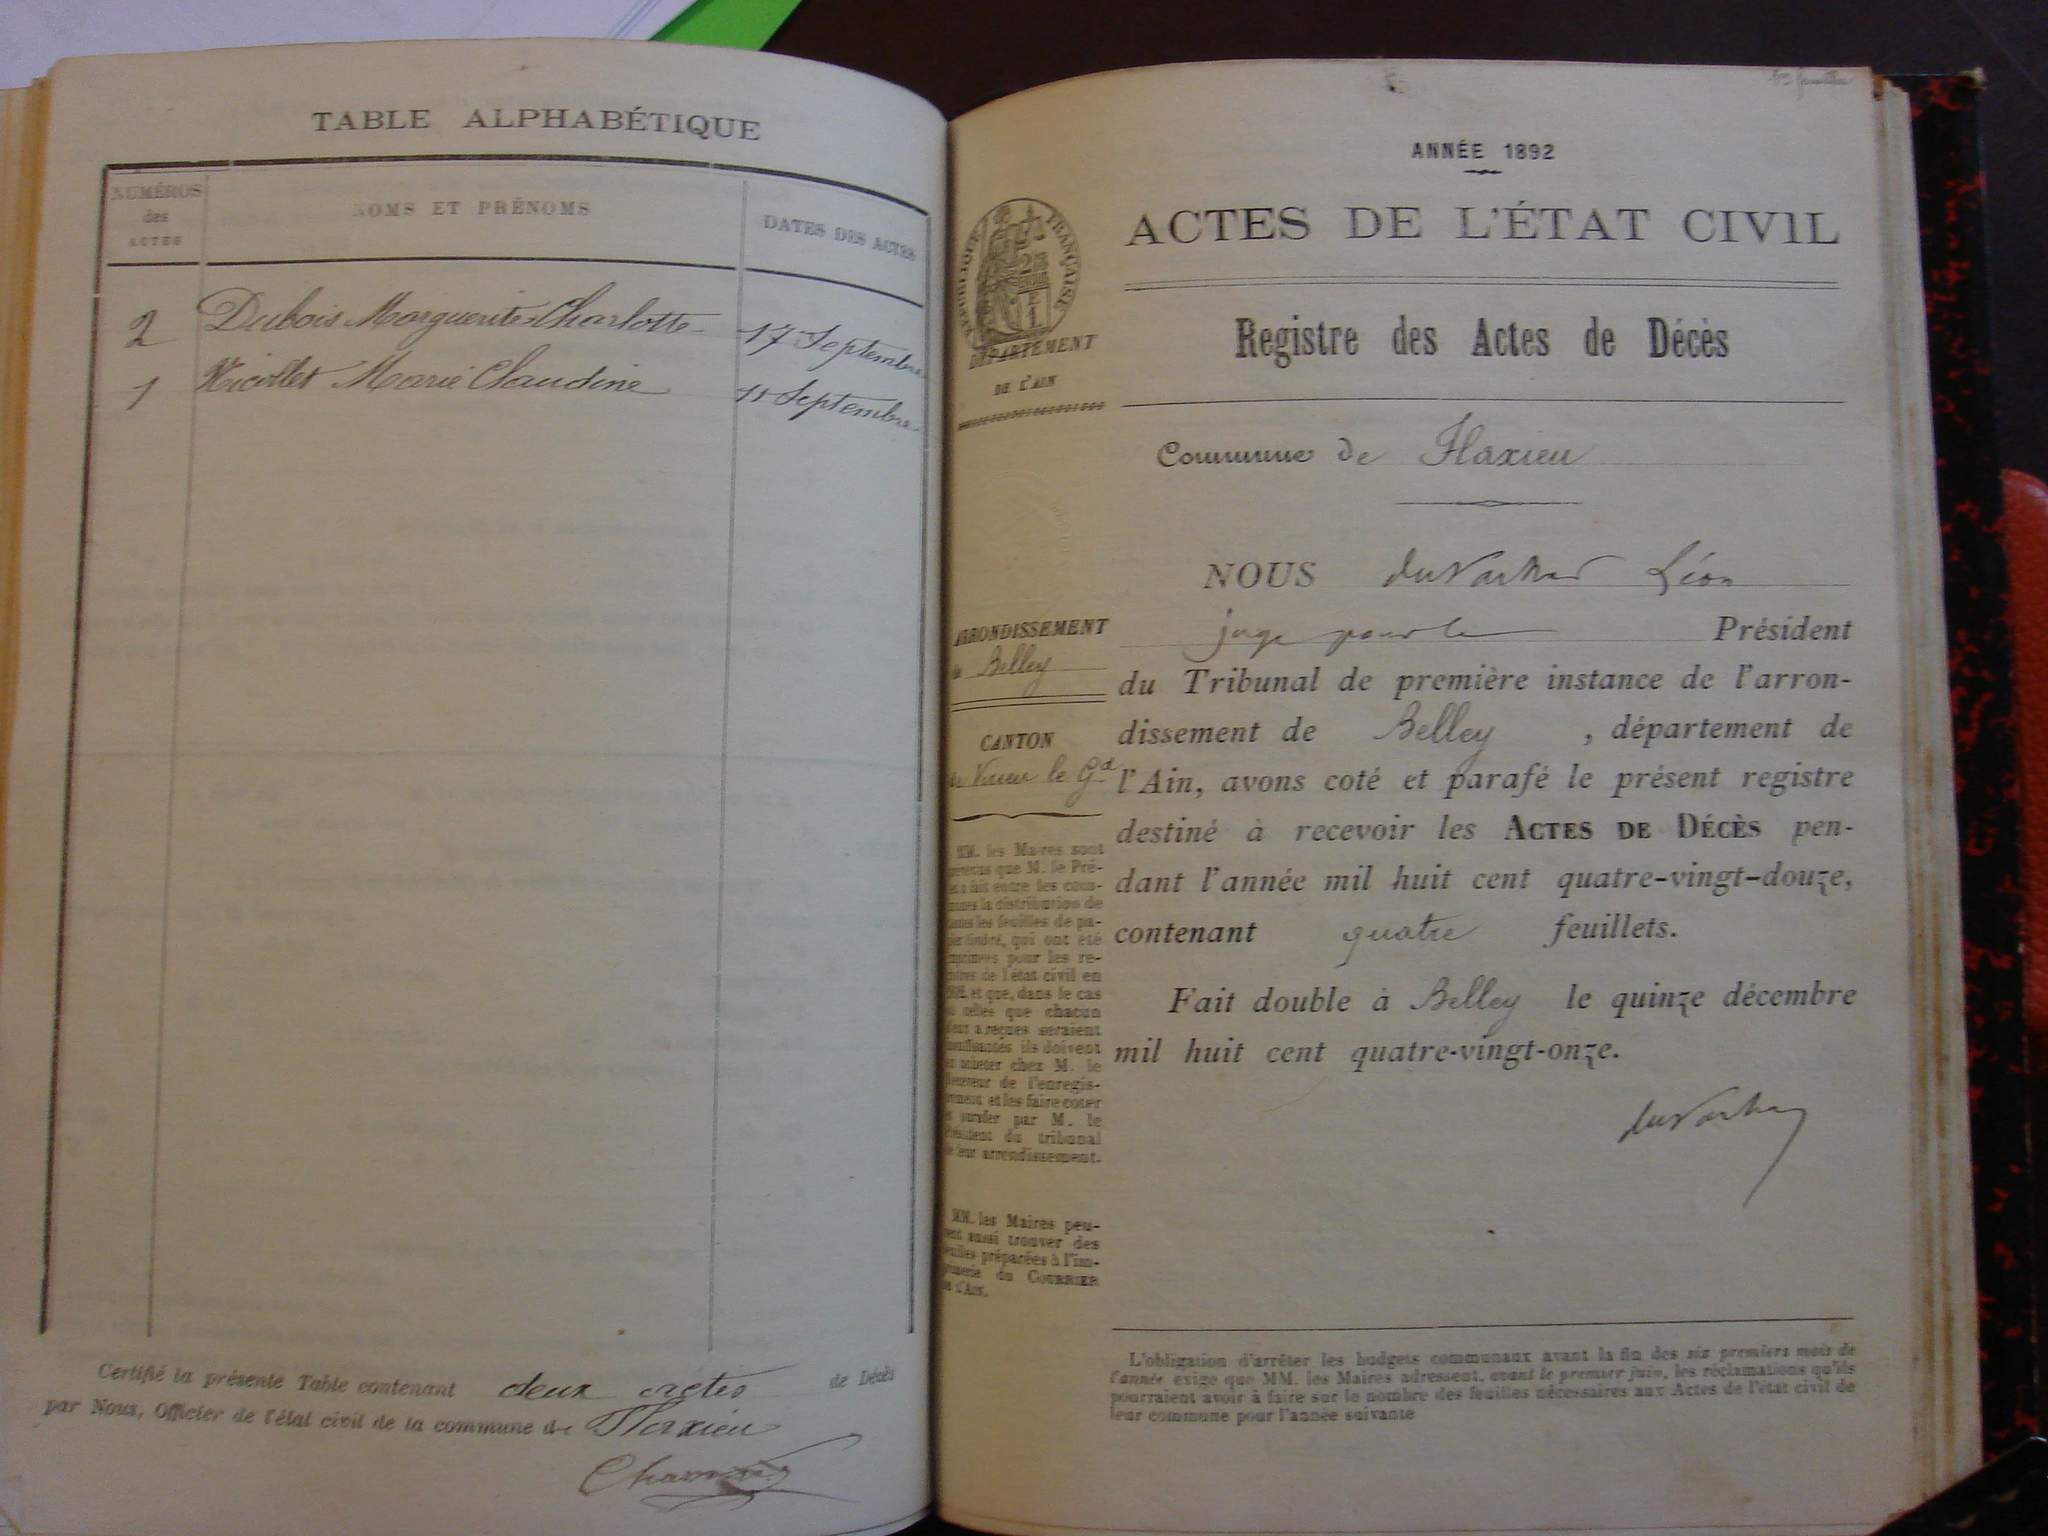 TABLE ALPHABÉTIQUE
NUMÉROS
des
ACTES
NOMS ET PRÉNOMS
DATES DES ACTES
2 Dubois Marguerite Charlotte 17 Septembre
1 Nicollet Marie Claudine 11 Septembre
Certifié la présente Table contenant deux actes de Décès
par Nous, Officier de l'état civil de la commune de Flaxieu
ANNÉE 1892
ACTES DE L'ÉTAT CIVIL
RÉPUBLIQUE FRANÇAISE
DÉPARTEMENT
DE L'AIN
Registre des Actes de Décès
Commune de Flaxieu
NOUS Léon
juge pour le Président
du Tribunal de première instance de l'arron-
dissement de Belley, département de
l'Ain, avons coté et parafé le présent registre
destiné à recevoir les ACTES DE DÉCÈS pen-
dant l'année mil huit cent quatre-vingt-douze,
contenant quatre feuillets.
Fait double à Belley le quinze décembre
mil huit cent quatre-vingt-onze.
ARRONDISSEMENT
Belley
CANTON
de Virieu le Gd
MM. les Maires sont
prévenus que M. le Pré-
fet a fait entre les com-
munes la distribution de
toutes les feuilles de pa-
pier timbré, qui ont été
imprimées pour les re-
gistres de l'état civil en
1892, et que, dans le cas
où celles que chacun
d'eux a reçues seraient
insuffisantes ils doivent
en acheter chez M. le
Receveur de l'enregis-
trement et les faire coter
et parafer par M. le
Président du tribunal
de leur arrondissement.
MM. les Maires peu-
vent aussi trouver des
feuilles préparées à l'im-
primerie du COURRIER
DE L'AIN.
L'obligation d'arrêter les budgets communaux avant la fin des six premiers mois de
l'année exige que MM. les Maires adressent, avant le premier juin, les réclamations qu'ils
pourraient avoir à faire sur le nombre des feuilles nécessaires aux Actes de l'état civil de
leur commune pour l'année suivante